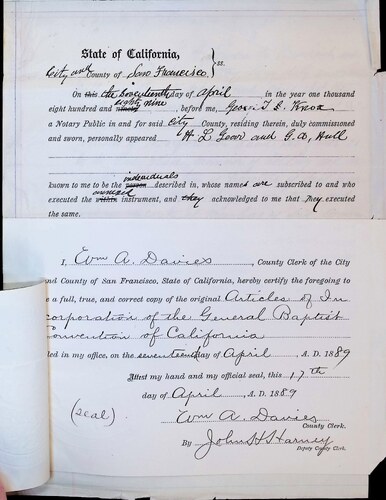 State of California,
City and County of San Francisco. } ss.
On this the Seventeenth day of April in the year one thousand
eight hundred and ninety eighty nine, before me, Geo. T. Knox
a Notary Public in and for said City County, residing therein, duly commissioned
and sworn, personally appeared H L Gear and G. A. Hull
individuals
known to me to be the person described in, whose names are subscribed to and who
annexed
executed the within instrument, and they acknowledged to me that they executed
the same.
I, Wm A. Davies, County Clerk of the City
and County of San Francisco, State of California, hereby certify the foregoing to
a full, true, and correct copy of the original Articles of In
corporation of the General Baptist
Convention of California
led in my office, on the seventeenth day of April, A. D. 1889
Attest my hand and my official seal, this 17th
day of April, A. D. 1889
(seal) Wm A. Davies
County Clerk.
By John H Harney
Deputy County Clerk.